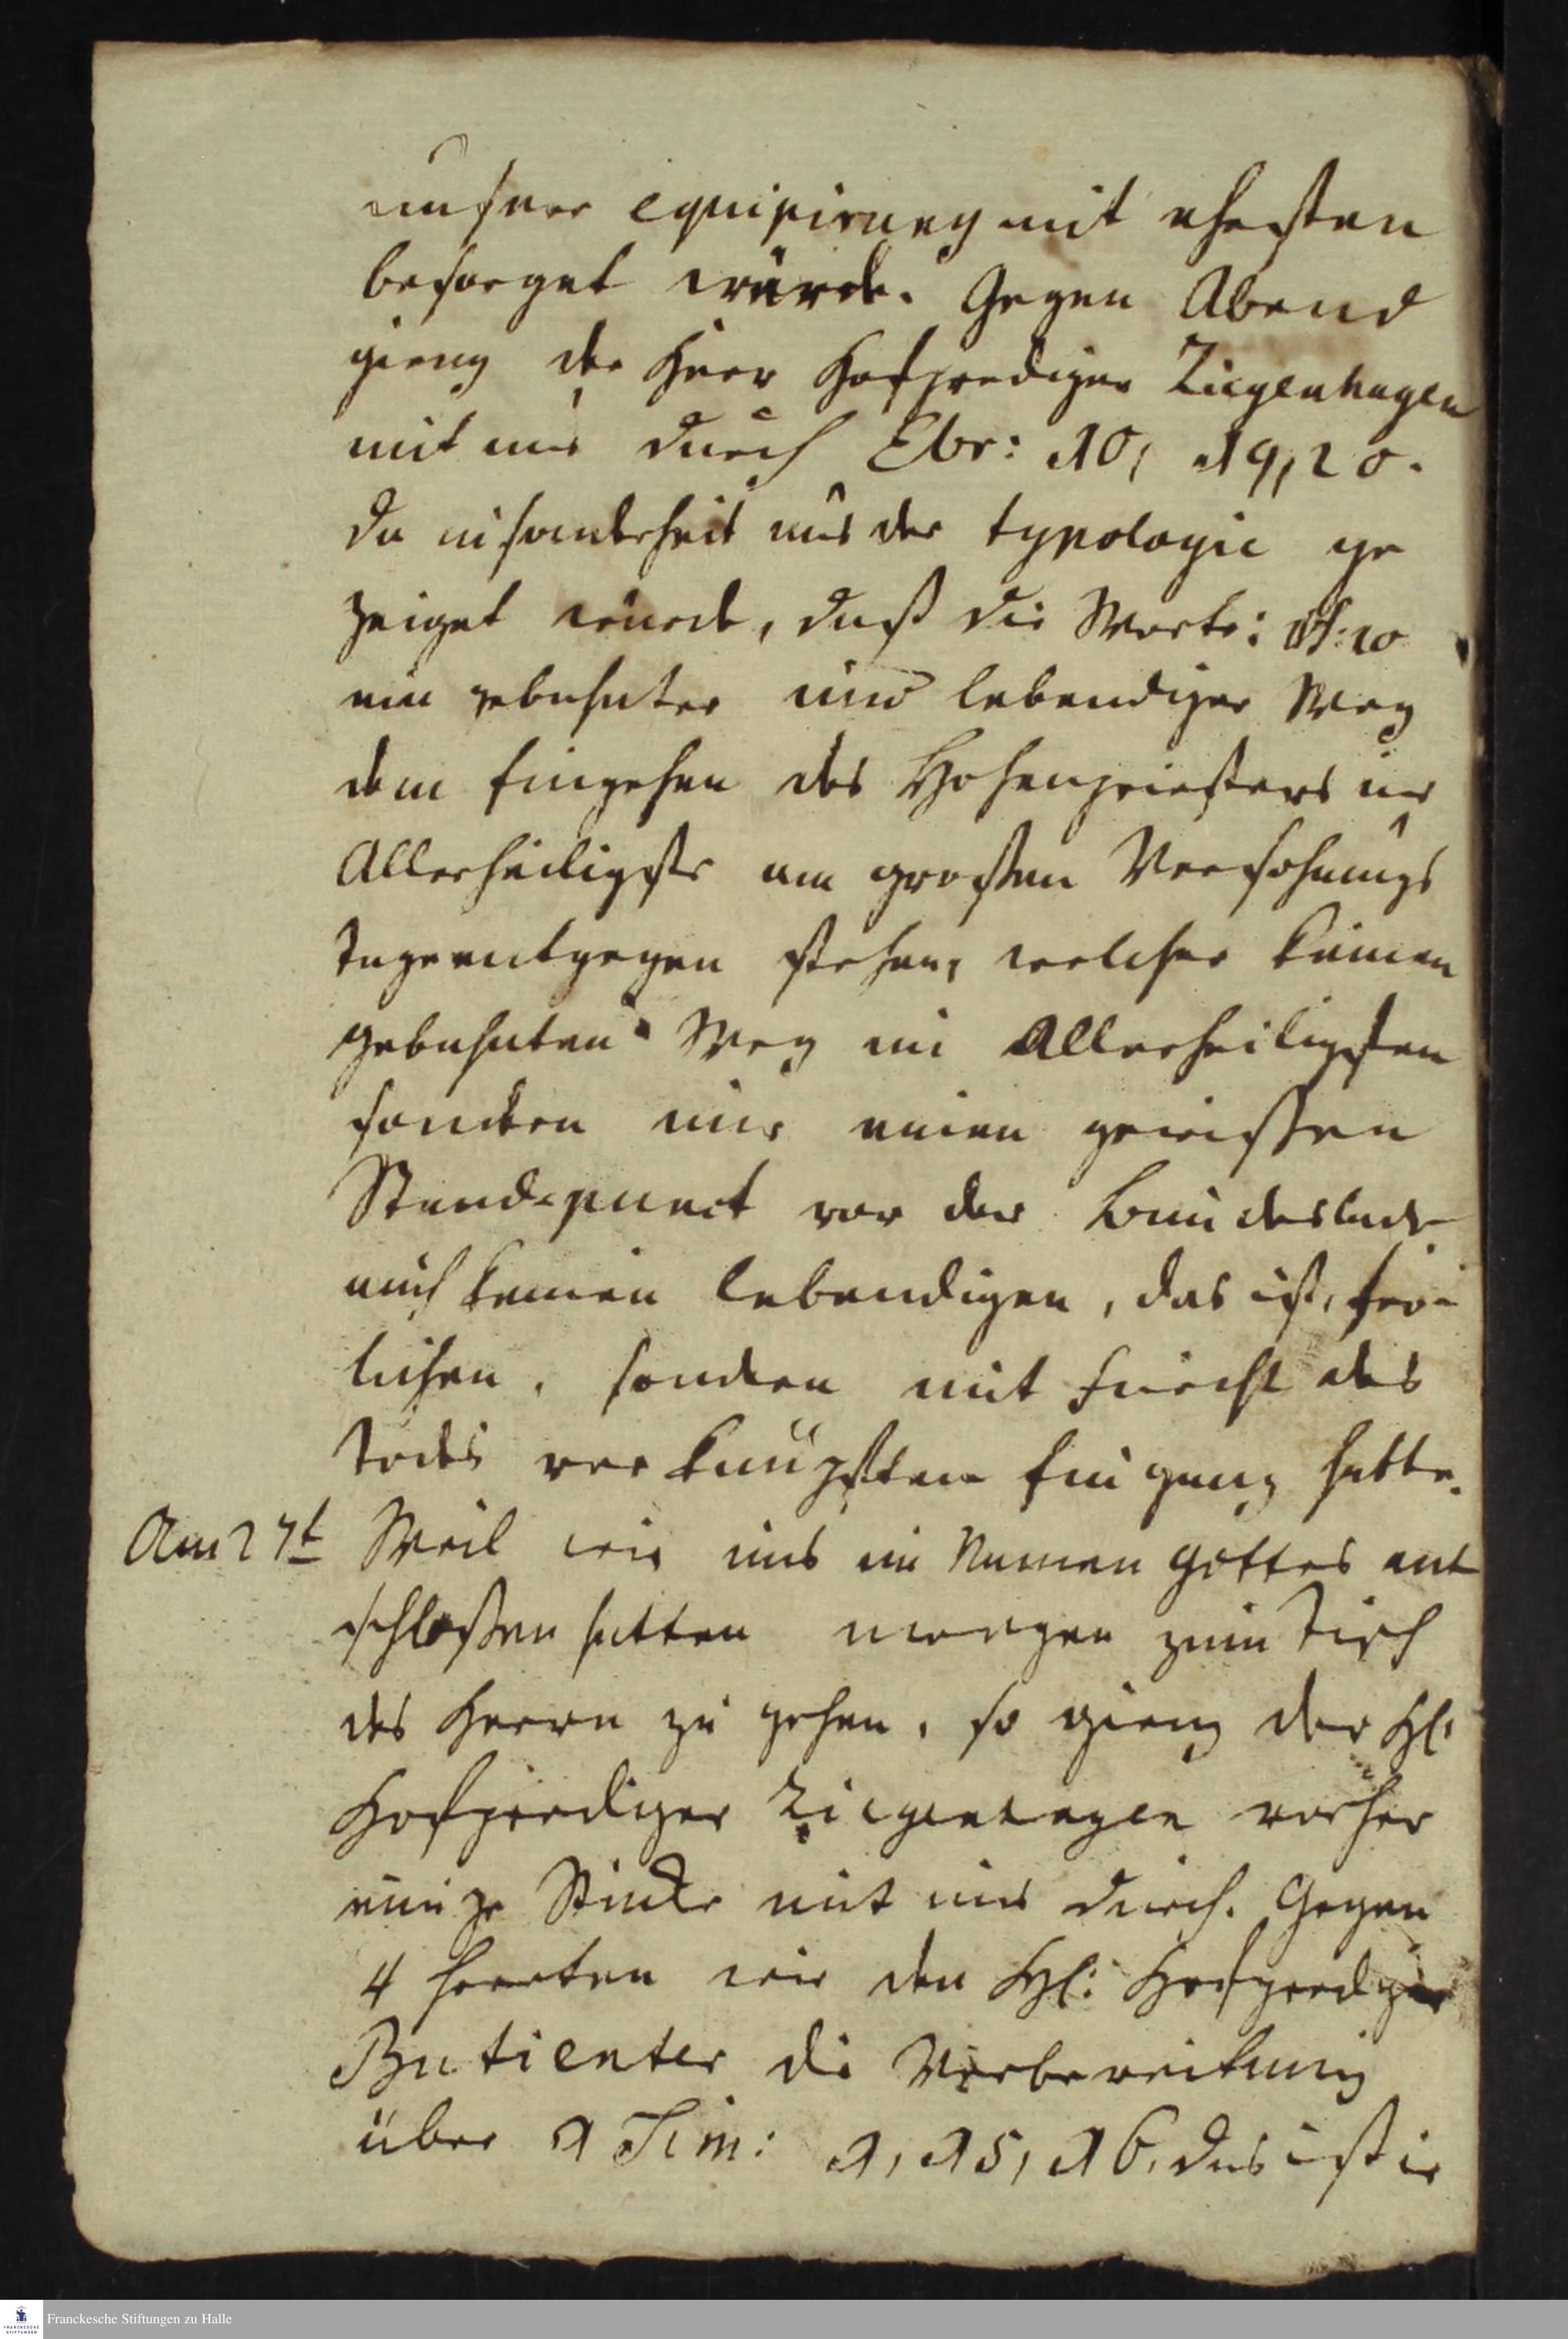 unserer equipirung mit ehesten
besorget würde. Gegen Abend
gieng der Herr Hofprediger Ziegenhagen
mit uns durch Ebr: 10, 19, 20.
da insonderheit aus der typologie ge
zeiget wurde, daß die Worte:
ein gebahnter und lebendiger Weg
dem Eingehen des Hohenpriesters ins
Allerheiligste am großen Versohnungs
Tage entgegen stehen, welcher keinen
gebahnten Weg im Allerheiligsten
sondern nur einen gewissen
Stand-punct vor der Bundeslade
auch keinen lebendigen, das ist, frö-
lichen, sondern mit Furcht des
Todes verknüpften Eingang hatte.
Am 27t Weil wir uns im Namen Gottes ent
schloßen hatten morgen zum Tisch
des Herrn zu gehen, so gieng der H.
Hofprediger Ziegenhagen vorher
einige Stücke mit uns durch. Gegen
4 hoerten wir den H: Hofprediger
Butienter die Vorbereitung
über 1 Tim: 1, 15, 16. das ist je
Franckesche Stiftungen zu Halle